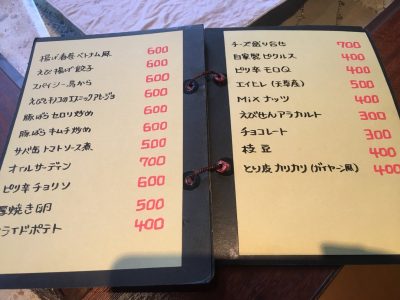 揚げ春巻ベトナム風 600
えび揚げ餃子 600
スパイシー鳥から 600
えびとキノコのエスニックアヒージョ 600
豚ばらセロリ炒め 600
豚ばらキムチ炒め 600
サバ缶トマトソース煮 500
オイルサーディン 700
ピリ辛チョリソ 600
厚焼き卵 500
フライドポテト 400
チーズ盛り合せ 700
自家製ピクルス 400
ピリ辛モロQ 400
エイヒレ(天草産) 500
Mixナッツ 400
えびせんアラカルト 300
チョコレート 300
枝豆 400
とり皮カリカリ(ガイヤーン風) 400